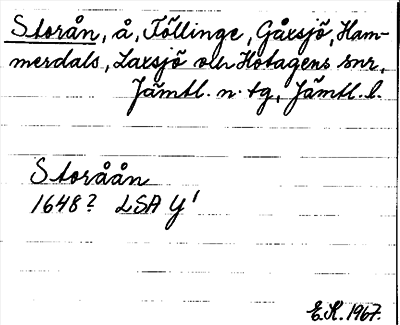 Storån, å, Föllinge, Gåxsjö, Ham-
merdals, Laxsjö och Hotagens snr,
Jämtl. n. tg, Jämtl. l.
Storåån
1648? LSA Y¹
E.K. 1967.